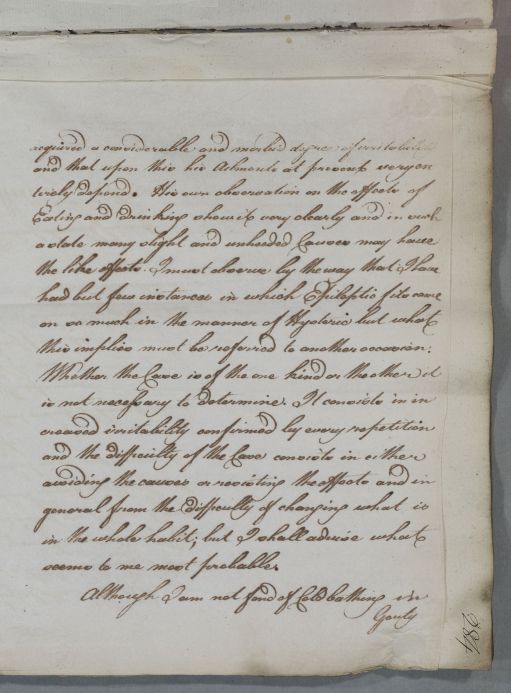 acquired a considerable and morbid degree of irritability
and that upon this his Ailments at present very en
tirely depend. His own observation on the effects of
Eating and drinking shows it very clearly and in such
a state many slight and unheeded Causes may have
the like effects. I must observe by the way that I have
had but few instances in which Epileptic fits came
on so much in the manner of Hysteric but what
this implies must be referred to another occasion:
Whether the Case is of the one kind or the other it
is not necessary to determine. It consists in in
creased irritability confirmed by every repetition
and the difficulty of the Case consists in either
avoiding the causes or resisting the effects and in
general from the difficulty of changing what is
in the whole habit; but I shall advise what
seems to me most probable.
Although I am not fond of Cold bathing in
Gouty
284